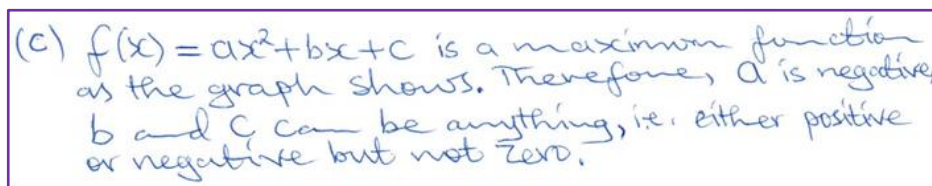 (c) f(x) = ax²+bx+c is a maximum function
as the graph shows. Therefore, a is negative,
b and c can be anything, i.e. either positive
or negative but not zero.